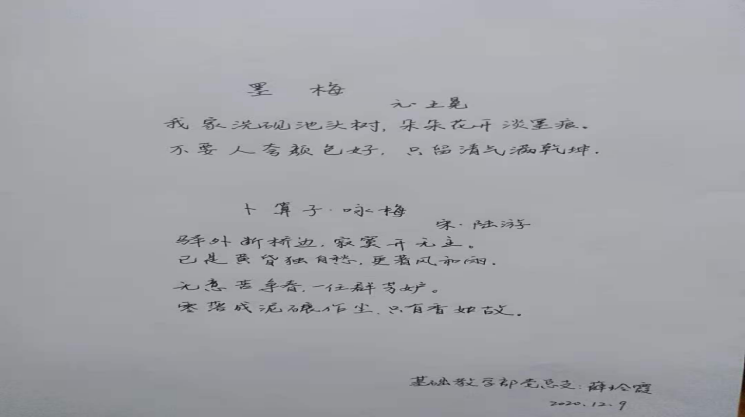 墨 梅
元·王冕
我家洗砚池头树，朵朵花开淡墨痕。
不要人夸颜色好，只留清气满乾坤．
卜算子·咏梅
宋·陆游
驿外断桥边，寂寞开无主。
已是黄昏独自愁，更著风和雨．
无意苦争春，一任群芳妒。
零落成泥碾作尘，只有香如故。
基础教学部党总支：薛玲霞
2020.12.9